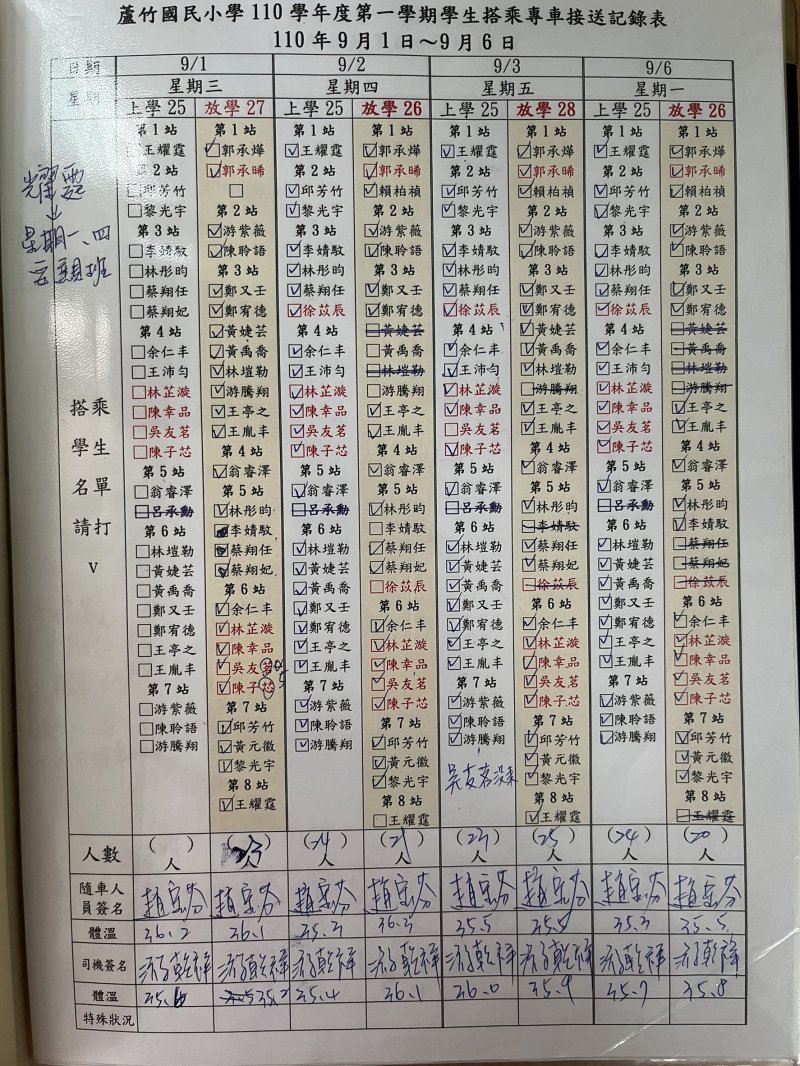 蘆竹國民小學 110 學年度第一學期學生搭乘專車接送記錄表
110 年 9 月 1 日～9 月 6 日
日期 9/1 9/2 9/3 9/6
星期 星期三 星期四 星期五 星期一
上學 25 放學 27 上學 25 放學 26 上學 25 放學 28 上學 25 放學 26
星期一、四
搭乘
學生
名單
請打
V
第 1 站
王耀霆
第 2 站
邱芳竹
黎光宇
第 3 站
李婧馭
林彤昀
蔡翔任
蔡翔妃
第 4 站
余仁丰
王沛勻
林芷漩
陳幸品
吳友茗
陳子芯
第 5 站
翁睿澤
呂承勳
第 6 站
林塏勒
黃婕芸
黃禹喬
鄭又壬
鄭宥德
王亭之
王胤丰
第 7 站
游紫薇
陳聆語
游騰翔
第 1 站
郭承燁
郭承晞
第 2 站
游紫薇
陳聆語
第 3 站
鄭又壬
鄭宥德
黃婕芸
黃禹喬
林塏勒
游騰翔
王亭之
王胤丰
第 4 站
翁睿澤
第 5 站
林彤昀
李婧馭
蔡翔任
蔡翔妃
第 6 站
余仁丰
林芷漩
陳幸品
吳友茗
陳子芯
第 7 站
邱芳竹
黃元徽
黎光宇
第 8 站
王耀霆
第 1 站
王耀霆
第 2 站
邱芳竹
黎光宇
第 3 站
李婧馭
林彤昀
蔡翔任
徐苡辰
第 4 站
余仁丰
王沛勻
林芷漩
陳幸品
吳友茗
陳子芯
第 5 站
翁睿澤
呂承勳
第 6 站
林塏勒
黃婕芸
黃禹喬
鄭又壬
鄭宥德
王亭之
王胤丰
第 7 站
游紫薇
陳聆語
游騰翔
第 1 站
郭承燁
郭承晞
賴柏禎
第 2 站
游紫薇
陳聆語
第 3 站
鄭又壬
鄭宥德
黃婕芸
黃禹喬
林塏勒
游騰翔
王亭之
王胤丰
第 4 站
翁睿澤
第 5 站
林彤昀
李婧馭
蔡翔任
蔡翔妃
徐苡辰
第 6 站
余仁丰
林芷漩
陳幸品
吳友茗
陳子芯
第 7 站
邱芳竹
黃元徽
黎光宇
第 8 站
王耀霆
第 1 站
王耀霆
第 2 站
邱芳竹
黎光宇
第 3 站
李婧馭
林彤昀
蔡翔任
徐苡辰
第 4 站
余仁丰
王沛勻
林芷漩
陳幸品
吳友茗
陳子芯
第 5 站
翁睿澤
呂承勳
第 6 站
林塏勒
黃婕芸
黃禹喬
鄭又壬
鄭宥德
王亭之
王胤丰
第 7 站
游紫薇
陳聆語
游騰翔
吳友茗沒來
第 1 站
郭承燁
郭承晞
賴柏禎
第 2 站
游紫薇
陳聆語
第 3 站
鄭又壬
鄭宥德
黃婕芸
黃禹喬
林塏勒
游騰翔
王亭之
王胤丰
第 4 站
翁睿澤
第 5 站
林彤昀
李婧馭
蔡翔任
蔡翔妃
徐苡辰
第 6 站
余仁丰
林芷漩
陳幸品
吳友茗
陳子芯
第 7 站
邱芳竹
黃元徽
黎光宇
第 8 站
王耀霆
第 1 站
王耀霆
第 2 站
邱芳竹
黎光宇
第 3 站
李婧馭
林彤昀
蔡翔任
徐苡辰
第 4 站
余仁丰
王沛勻
林芷漩
陳幸品
吳友茗
陳子芯
第 5 站
翁睿澤
呂承勳
第 6 站
林塏勒
黃婕芸
黃禹喬
鄭又壬
鄭宥德
王亭之
王胤丰
第 7 站
游紫薇
陳聆語
游騰翔
第 1 站
郭承燁
郭承晞
賴柏禎
第 2 站
游紫薇
陳聆語
第 3 站
鄭又壬
鄭宥德
黃婕芸
黃禹喬
林塏勒
游騰翔
王亭之
王胤丰
第 4 站
翁睿澤
第 5 站
林彤昀
李婧馭
蔡翔任
蔡翔妃
徐苡辰
第 6 站
余仁丰
林芷漩
陳幸品
吳友茗
陳子芯
第 7 站
邱芳竹
黃元徽
黎光宇
第 8 站
王耀霆
人數 ( )人 (23)人 (24)人 (21)人 (23)人 (25)人 (24)人 (20)人
隨車人
員簽名
體溫 36.2 36.1 35.2 36.3 35.5 35.5 35.3 35.5
司機簽名
體溫 35.6 35.2 35.4 36.1 36.0 35.9 35.7 35.8
特殊狀況